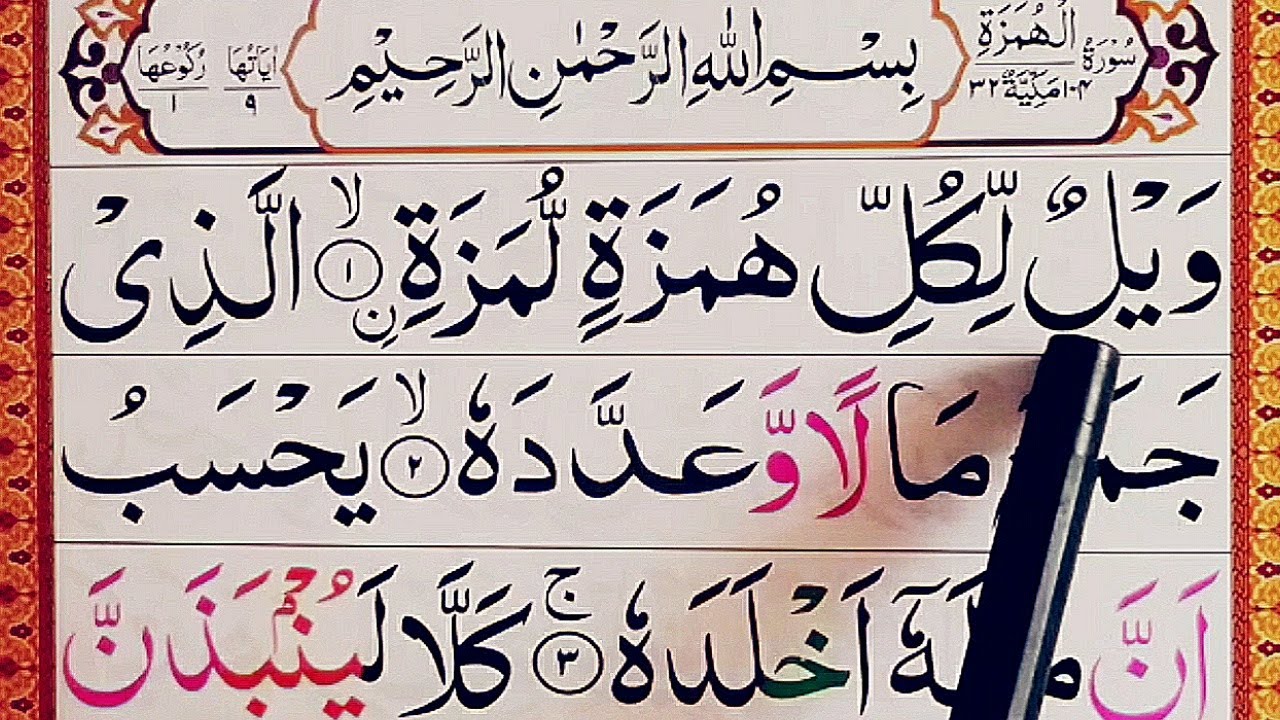 سُوْرَةُ الْهُمَزَةِ
١٠٤ مَكِّيَّةٌ ٣٢
بِسْمِ اللهِ الرَّحْمٰنِ الرَّحِيْمِ
اٰيَاتُهَا ٩
رُكُوْعُهَا ١
وَيْلٌ لِّكُلِّ هُمَزَةٍ لُّمَزَةِ ۙ﴿١﴾ ۨ الَّذِىْ
مَالًا وَّ عَدَّدَهٗ ۙ﴿٢﴾ يَحْسَبُ
اَنَّ اَخْلَدَهٗ ۚ﴿٣﴾ كَلَّا لَيُنْۢبَذَنَّ